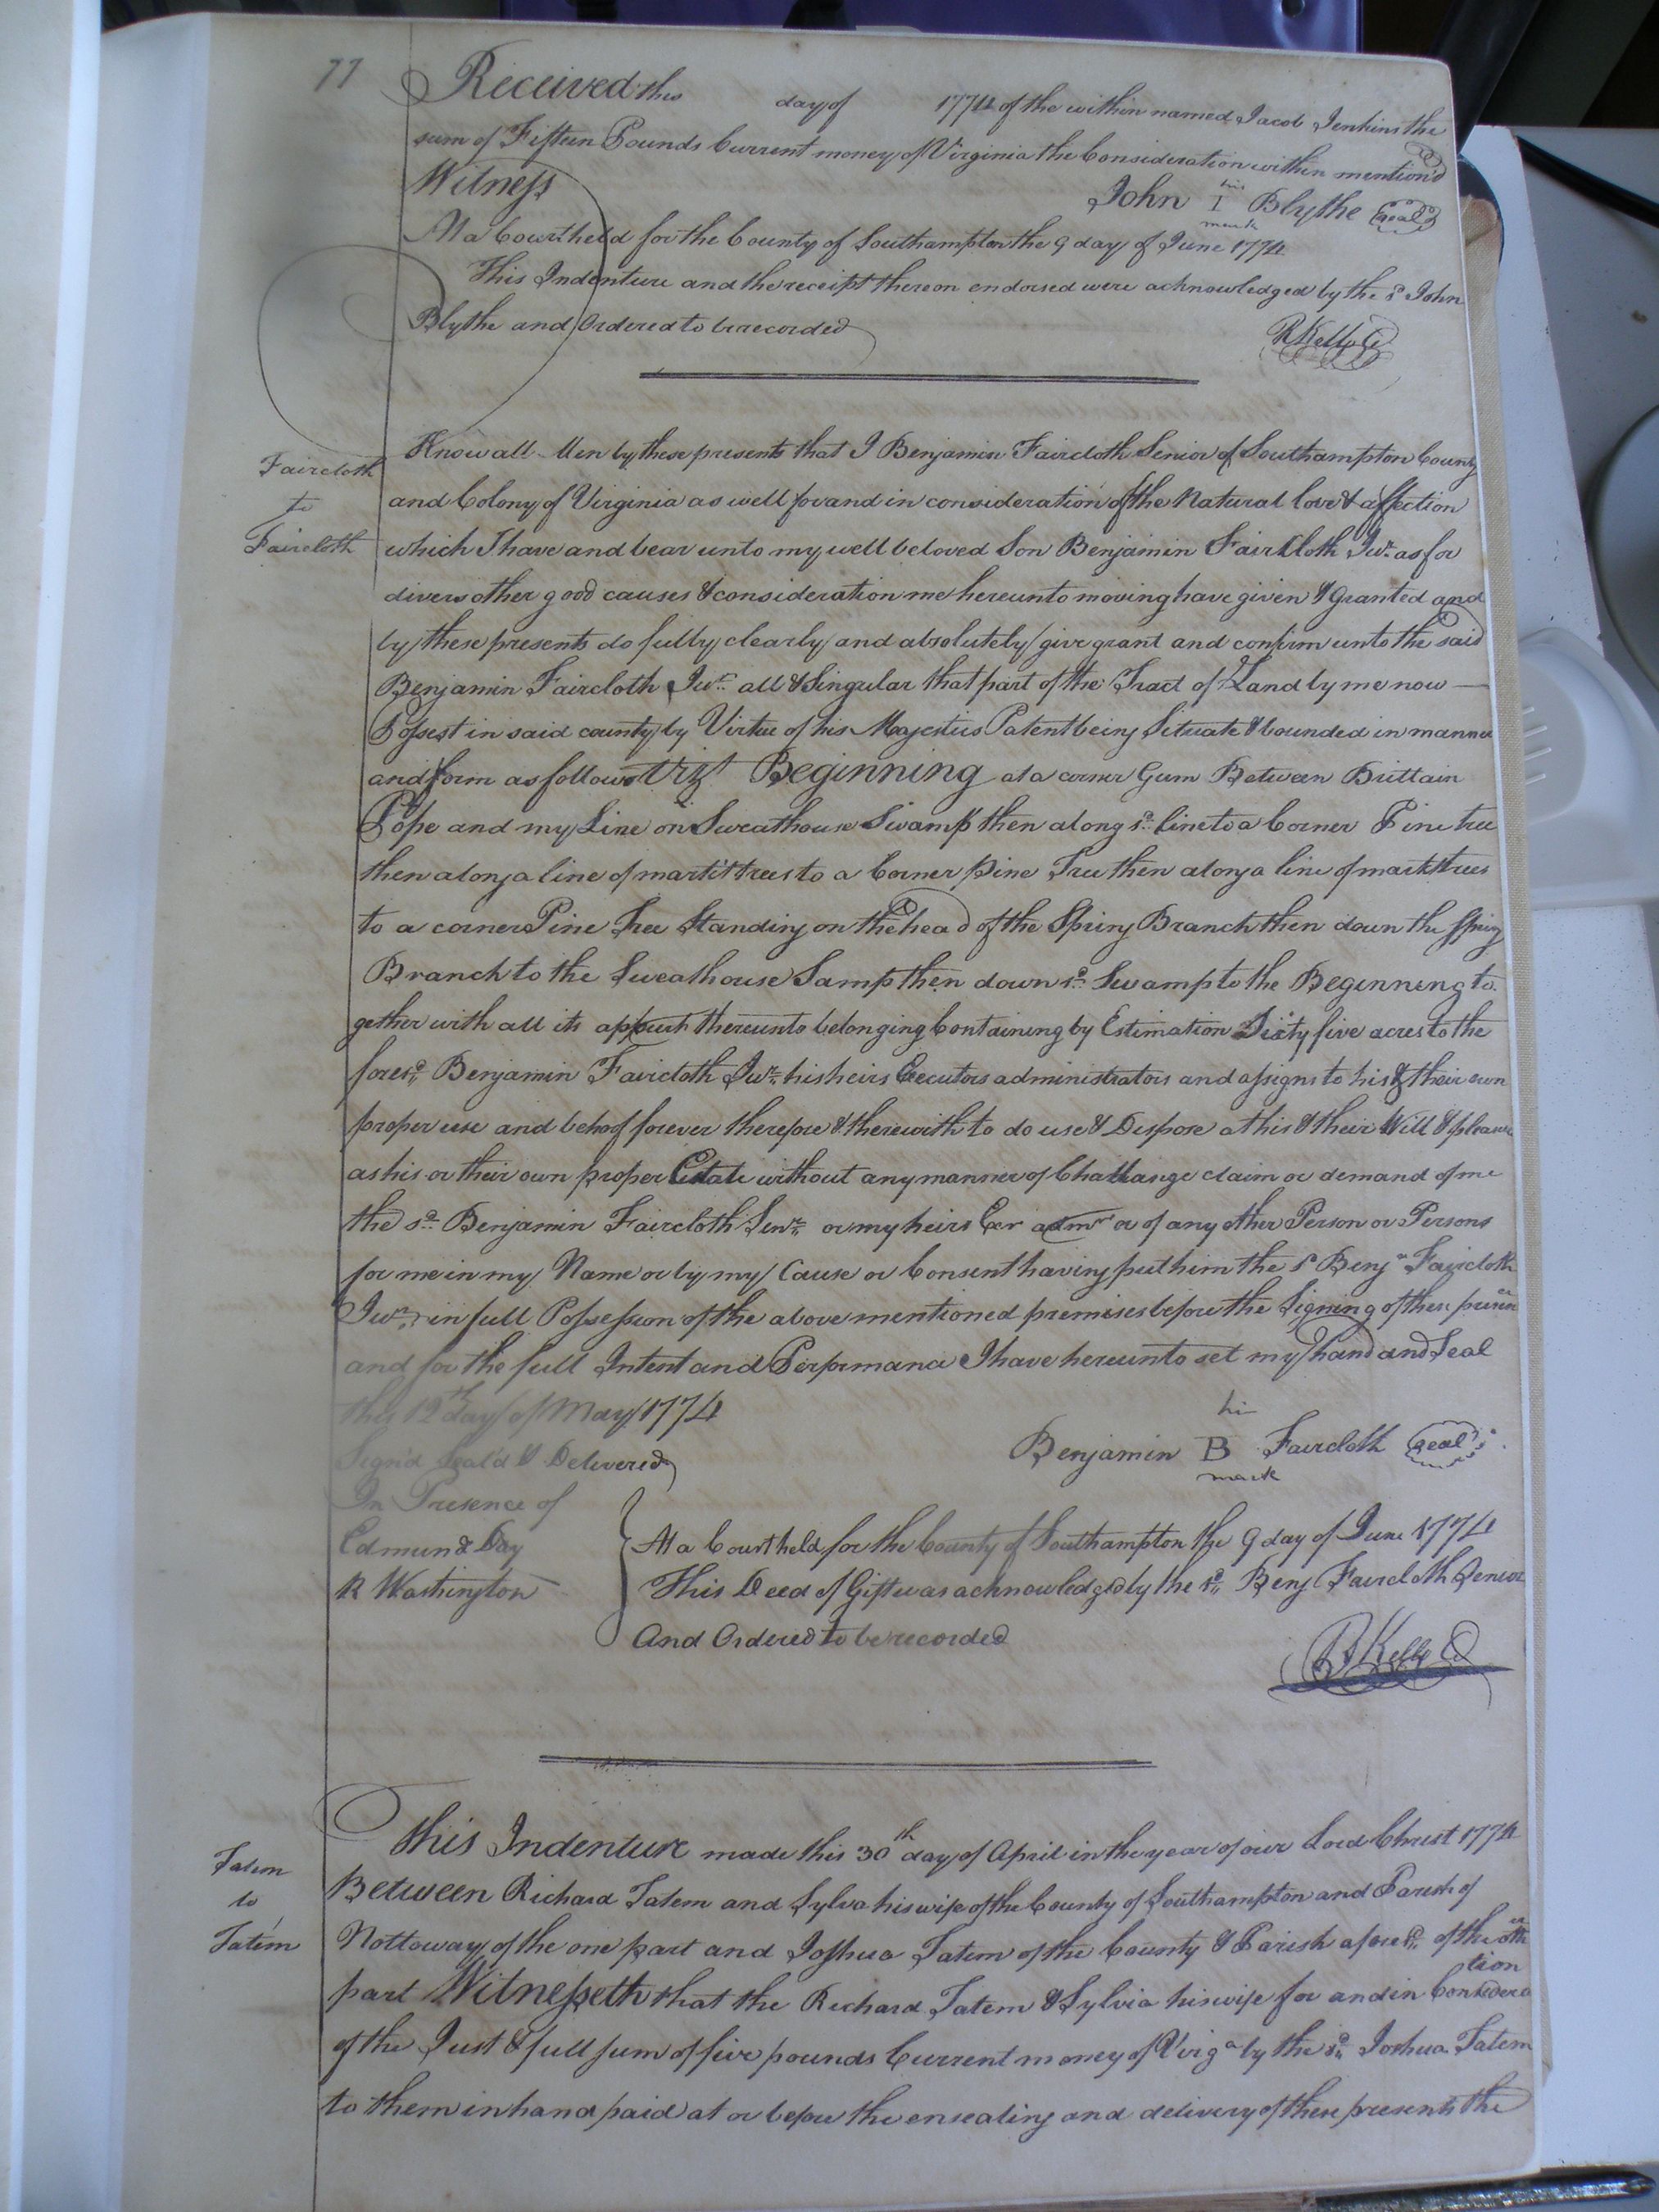 77
Received this day of 1774 of the within named Jacob Jenkins the
sum of Fifteen Pounds Current money of Virginia the Consideration within mention'd
Witness
John his I mark Blythe seal
At a Court held for the County of Southampton the 9 day of June 1774
This Indenture and the receipt thereon endorsed were acknowledged by the sd John
Blythe and Ordered to be recorded
RKello C
Faircloth
to
Faircloth
Know all Men by these presents that I Benjamin Faircloth Senior of Southampton County
and Colony of Virginia as well for and in consideration of the Natural love & affection
which I have and bear unto my well beloved Son Benjamin Faircloth Junr. as for
divers other good causes & consideration me hereunto moving have given & Granted and
by these presents do fully clearly and absolutely give grant and confirm unto the said
Benjamin Faircloth Junr. all & Singular that part of the Tract of Land by me now
Possest in said county by Virtue of his Majesties Patent being Situate & bounded in manner
and form as follows Vizt Beginning at a corner Gum Between Brittain
Pope and my Line on Sweathouse Swamp then along sd. line to a Corner Pine tree
then along a line of markt trees to a Corner pine Tree then along a line of markt trees
to a corner Pine Tree Standing on the head of the Spring Branch then down the Spring
Branch to the Sweathouse Samp then down sd. Swamp to the Beginning to
gether with all its appurts thereunto belonging Containing by Estimation Sixty five acres to the
foresd. Benjamin Faircloth Junr. his heirs Executors administrators and assigns to his & their own
proper use and behoof forever therefore & therewith to do use & Dispose at his & their Will & pleasure
as his or their own proper Estate without any manner of Challange claim or demand of me
the sd. Benjamin Faircloth Senr. or my heirs Exr admr or of any other Person or Persons
for me in my Name or by my Cause or Consent having put him the sd Benjn Faircloth
Junr. in full Possession of the above mentioned premises before the Signing of these
and for the full Intent and Performance I have hereunto set my hand and Seal
this 12th day of May 1774
Benjamin his B mark Faircloth seal
Sign'd Seal'd & Delivered
In Presence of
Edmund Day
R Washington
At a Court held for the County of Southampton the 9 day of June 1774
This Deed of Gift was acknowledged by the sd. Benj Faircloth Senior
And Ordered to be recorded
RKello C
Tatem
to
Tatem
This Indenture made this 30th day of April in the year of our Lord Christ 1774
Between Richard Tatem and Sylva his wife of the County of Southampton and Parish of
Nottoway of the one part and Joshua Tatem of the County & Parish aforesd. of the other
part Witnesseth that the Richard Tatem & Sylvia his wife for and in Consideration
of the Just & full sum of five pounds Current money of Virga by the sd. Joshua Tatem
to them in hand paid at or before the ensealing and delivery of these presents the